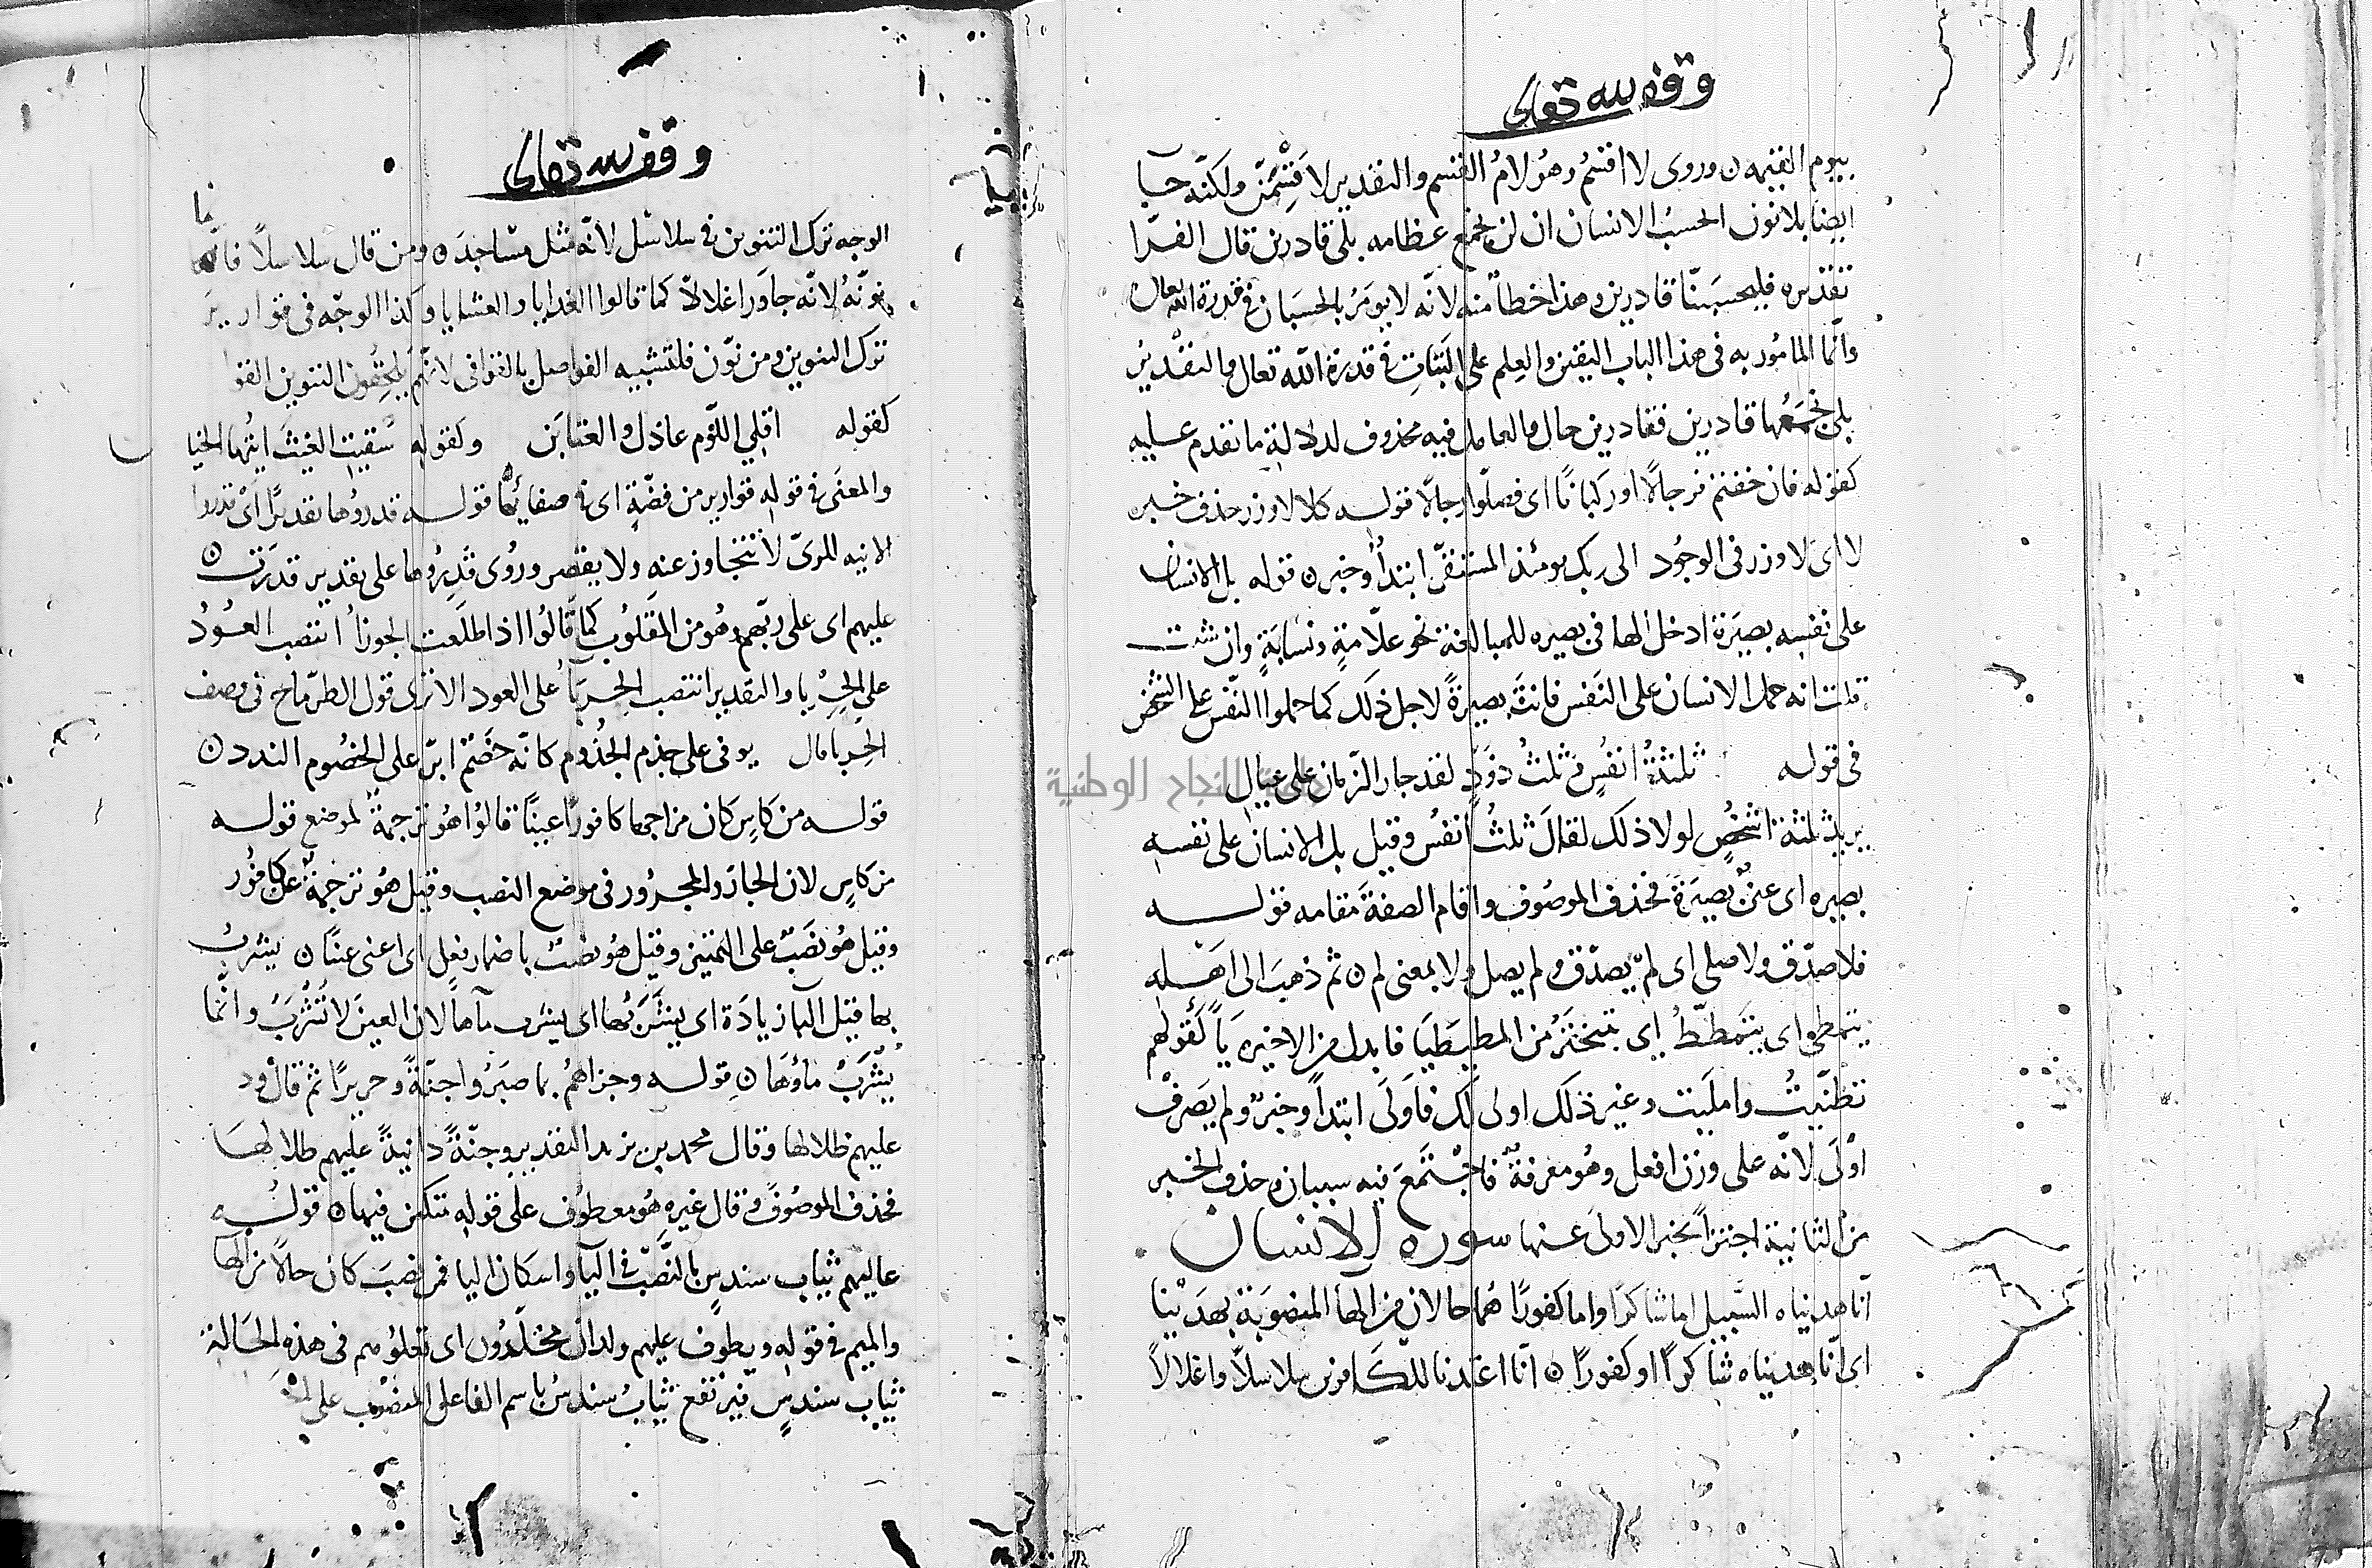 وقف لله تعالى
بيوم القيمه ن وروى لا اقسم وهو لام القسم والتقدير لاقسمن ولكنه جا
ايضا بلا نون الحسب الانسان ان لن نجمع عظامه بلى قادرين قال الفرا
تقديره فليحسبنا قادرين وهذا خطا منه لانه لا يومر بالحسبان في قدرة الله تعالى
وانما المامور به في هذا الباب اليقين والعلم على الثبات في قدرة الله تعالى والتقدير
بلى نجمعها قادرين فقادرين حال والعامل فيه محذوف لدلالة ما تقدم عليه
كقوله فان خفتم فرجالا او ركبانا اى فصلوا رجالا قوله كلا لا وزر حذف خبره
لا اى لا وزر في الوجود الى ربك يومئذ المستقر ابتدا وخبر ن قوله بل الانسان
على نفسه بصيرة ادخل الها في بصيره للمبالغة نحو علامة ونسابة وان شئت
قلت انه حمل الانسان على النفس فانث بصيرة لاجل ذلك كما حملوا النفس على الشخص
في قوله ثلثة انفس وثلث ذود لقد جار الزمان على عيالى
يريد ثلثة اشخص لولا ذلك لقال ثلث انفس وقيل بل الانسان على نفسه
بصيره اى عين بصيرة فحذف الموصوف واقام الصفة مقامه قوله
فلا صدق ولا صلى اى لم يصدق ولم يصل ولا بمعنى لم ن ثم ذهب الى اهله
يتمطى اى يتمطط اى يتبختر من المطيطيا فابدل من الاخيره يا كقولهم
تظنيت وامليت وغير ذلك اولى لك فاولى ابتدا وخبر ولم يصرف
اولى لانه على وزن افعل وهو معرفة فاجتمع فيه سببان وحذف الخبر
من الثانية اجتزا بخبر الاولى عنها سورة الانسان
انا هديناه السبيل اما شاكرا واما كفورا هما حالان من الها المنصوبة بهدينا
اى انا هديناه شاكرا او كفورا ن انا اعتدنا للكافرين سلاسلا واغلالا
وقف لله تعالى
الوجه ترك التنوين في سلاسل لانه مثل مساجد ن ومن قال سلاسلا فانما
نونه لانه جاور اغلالا كما قالوا الغدايا والعشايا وكذا الوجه في قوارير
ترك التنوين ومن نون فلتشبيه الفواصل بالقوافى لانهم يلحقون التنوين القوا
كقوله اقلي اللوم عاذل والعتابن وكقوله سقيت الغيث ايتها الخيا
والمعنى في قوله قوارير من فضة اى في صفا قوله قدروها تقديرا اى قدروا
الانيه للرى لا تتجاوز عنه ولا يقصر وروى قدروها على تقدير قدرت
عليهم اى على ربهم وهو من المقلوب كما قالوا اذا طلعت الجوزا انتصب العود
على الحربا والتقدير انتصب الحربا على العود الا ترى قول الطرماح في وصف
الحربا قال يوفى على جذم الجذوم كانه خصم ابر على الخصوم الندد ن
قوله من كاس كان مزاجها كافورا عينا قالوا هو ترجمة لموضع قوله
من كاس لان الجار والمجرور في موضع النصب وقيل هو ترجمة عن كافور
وقيل هو نصب على التمييز وقيل هو نصب باضمار فعل اى اعنى عينا ن يشرب
بها قيل البا زيادة اى يشربها اى يشرب ماها لان العين لا تشرب وانما
يشرب ماؤها ن قوله وجزاهم بما صبروا جنة وحريرا ثم قال ود
عليهم ظلالها وقال محمد بن يزيد التقدير وجنة دانية عليهم ظلالها
فحذف الموصوف وقال غيره هو معطوف على قوله متكئين فيها ن قوله
عاليهم ثياب سندس بالنصب في اليا واسكان اليا فمن نصب كان حالا من الها
والميم في قوله ويطوف عليهم ولدان مخلدون اى تعلوهم في هذه الحالة
ثياب سندس فيرتفع ثياب سندس باسم الفاعل المنصوب على
جامعة النجاح الوطنية